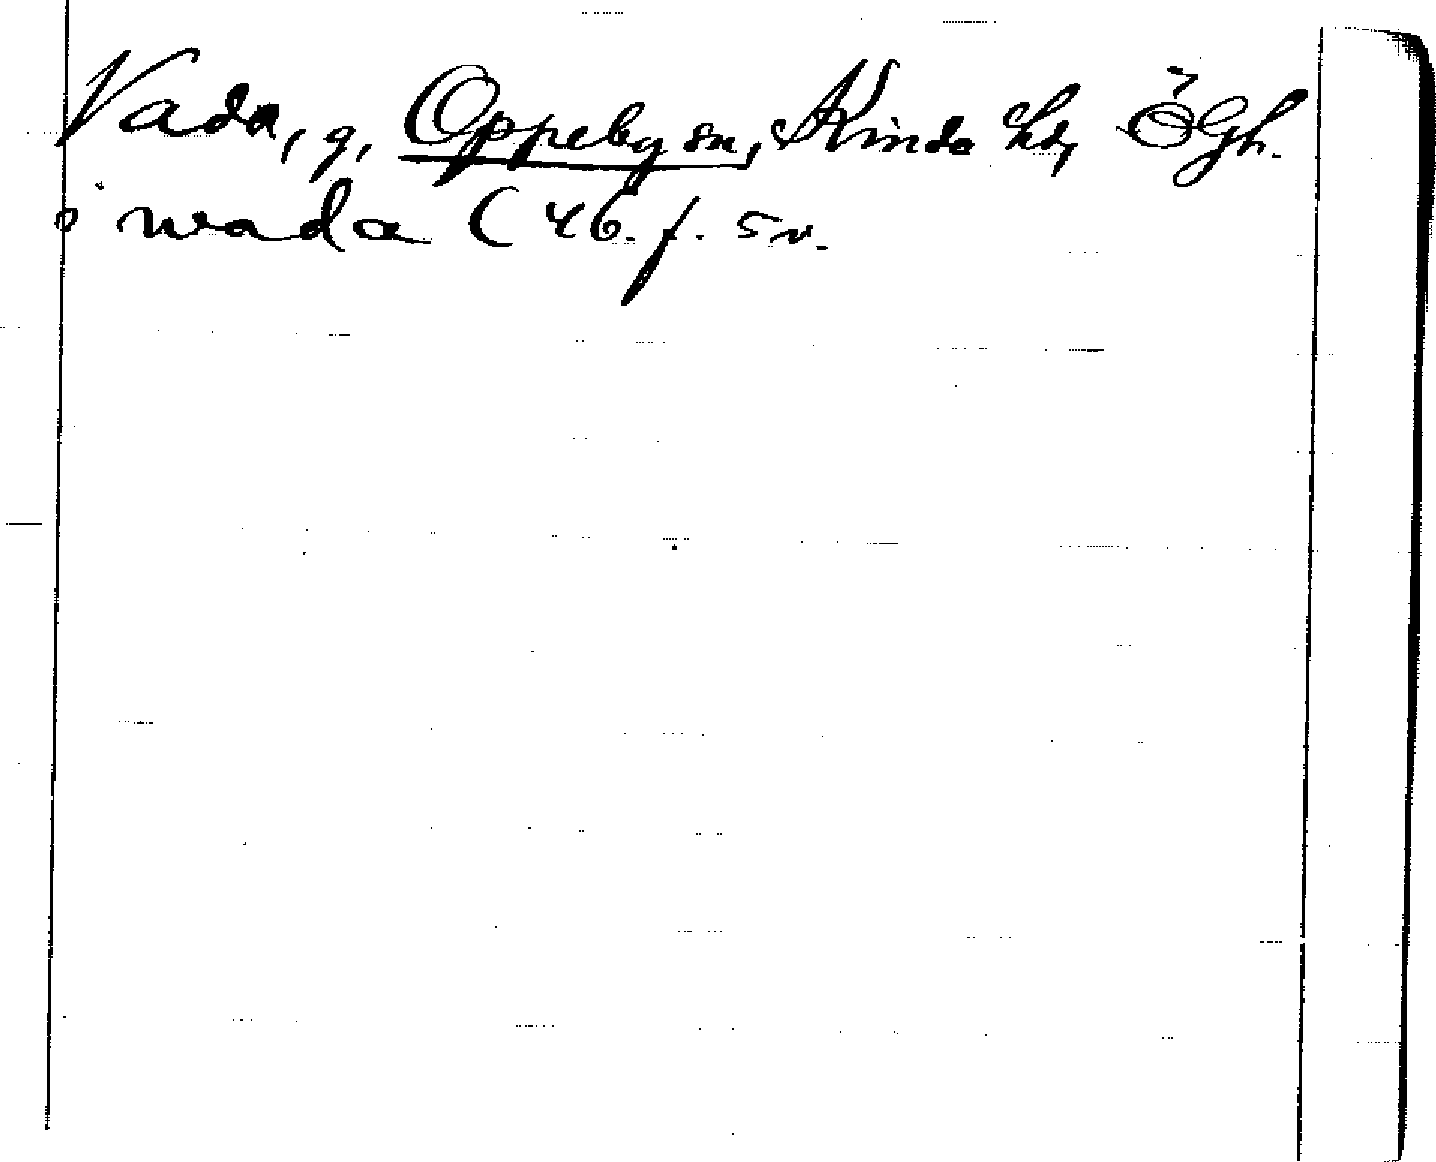 Vada, g, Oppeby sn, Kinda hd, Ögh.
i wada C 46. f. 5 v.